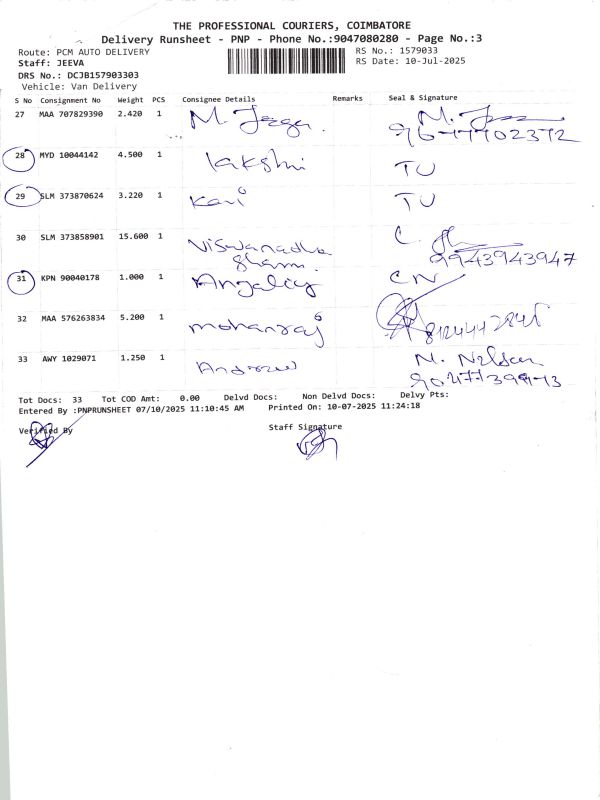 THE PROFESSIONAL COURIERS, COIMBATORE
Delivery Runsheet - PNP - Phone No.:9047080280 - Page No.:3
Route: PCM AUTO DELIVERY RS No.: 1579033
Staff: JEEVA RS Date: 10-Jul-2025
DRS No.: DCJB157903303
Vehicle: Van Delivery
S No Consignment No Weight PCS Consignee Details Remarks Seal & Signature
27 MAA 707829390 2.420 1 M.
28 MYD 10044142 4.500 1 lakshmi TU
29 SLM 373870624 3.220 1 Kavi TU
30 SLM 373858901 15.600 1 Viswanadha C.
9943943947
31 KPN 90040178 1.000 1 CN
32 MAA 576263834 5.200 1 mohanraj
33 AWY 1029071 1.250 1 Andrew N. Nelson
Tot Docs: 33 Tot COD Amt: 0.00 Delvd Docs: Non Delvd Docs: Delvy Pts:
Entered By :PNPRUNSHEET 07/10/2025 11:10:45 AM Printed On: 10-07-2025 11:24:18
Verified By Staff Signature